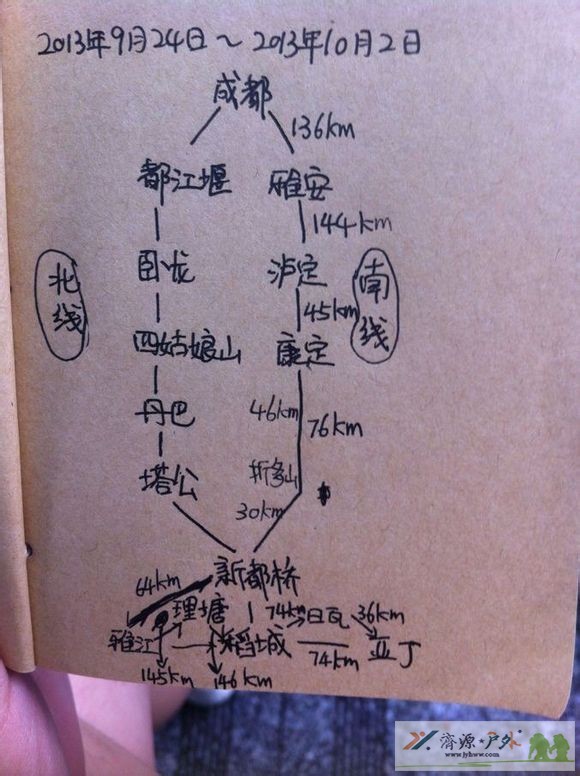 2013年9月24日～2013年10月2日
成都
136km
都江堰 雅安
144km
北线
卧龙 泸定
南线
45km
四姑娘山 康定
丹巴 46km 76km
塔公 折多山
30km
新都桥
64km
理塘 74km 日瓦 36km
雅江 稻城 74km 亚丁
145km 146km
济源·户外
www.jyhww.com